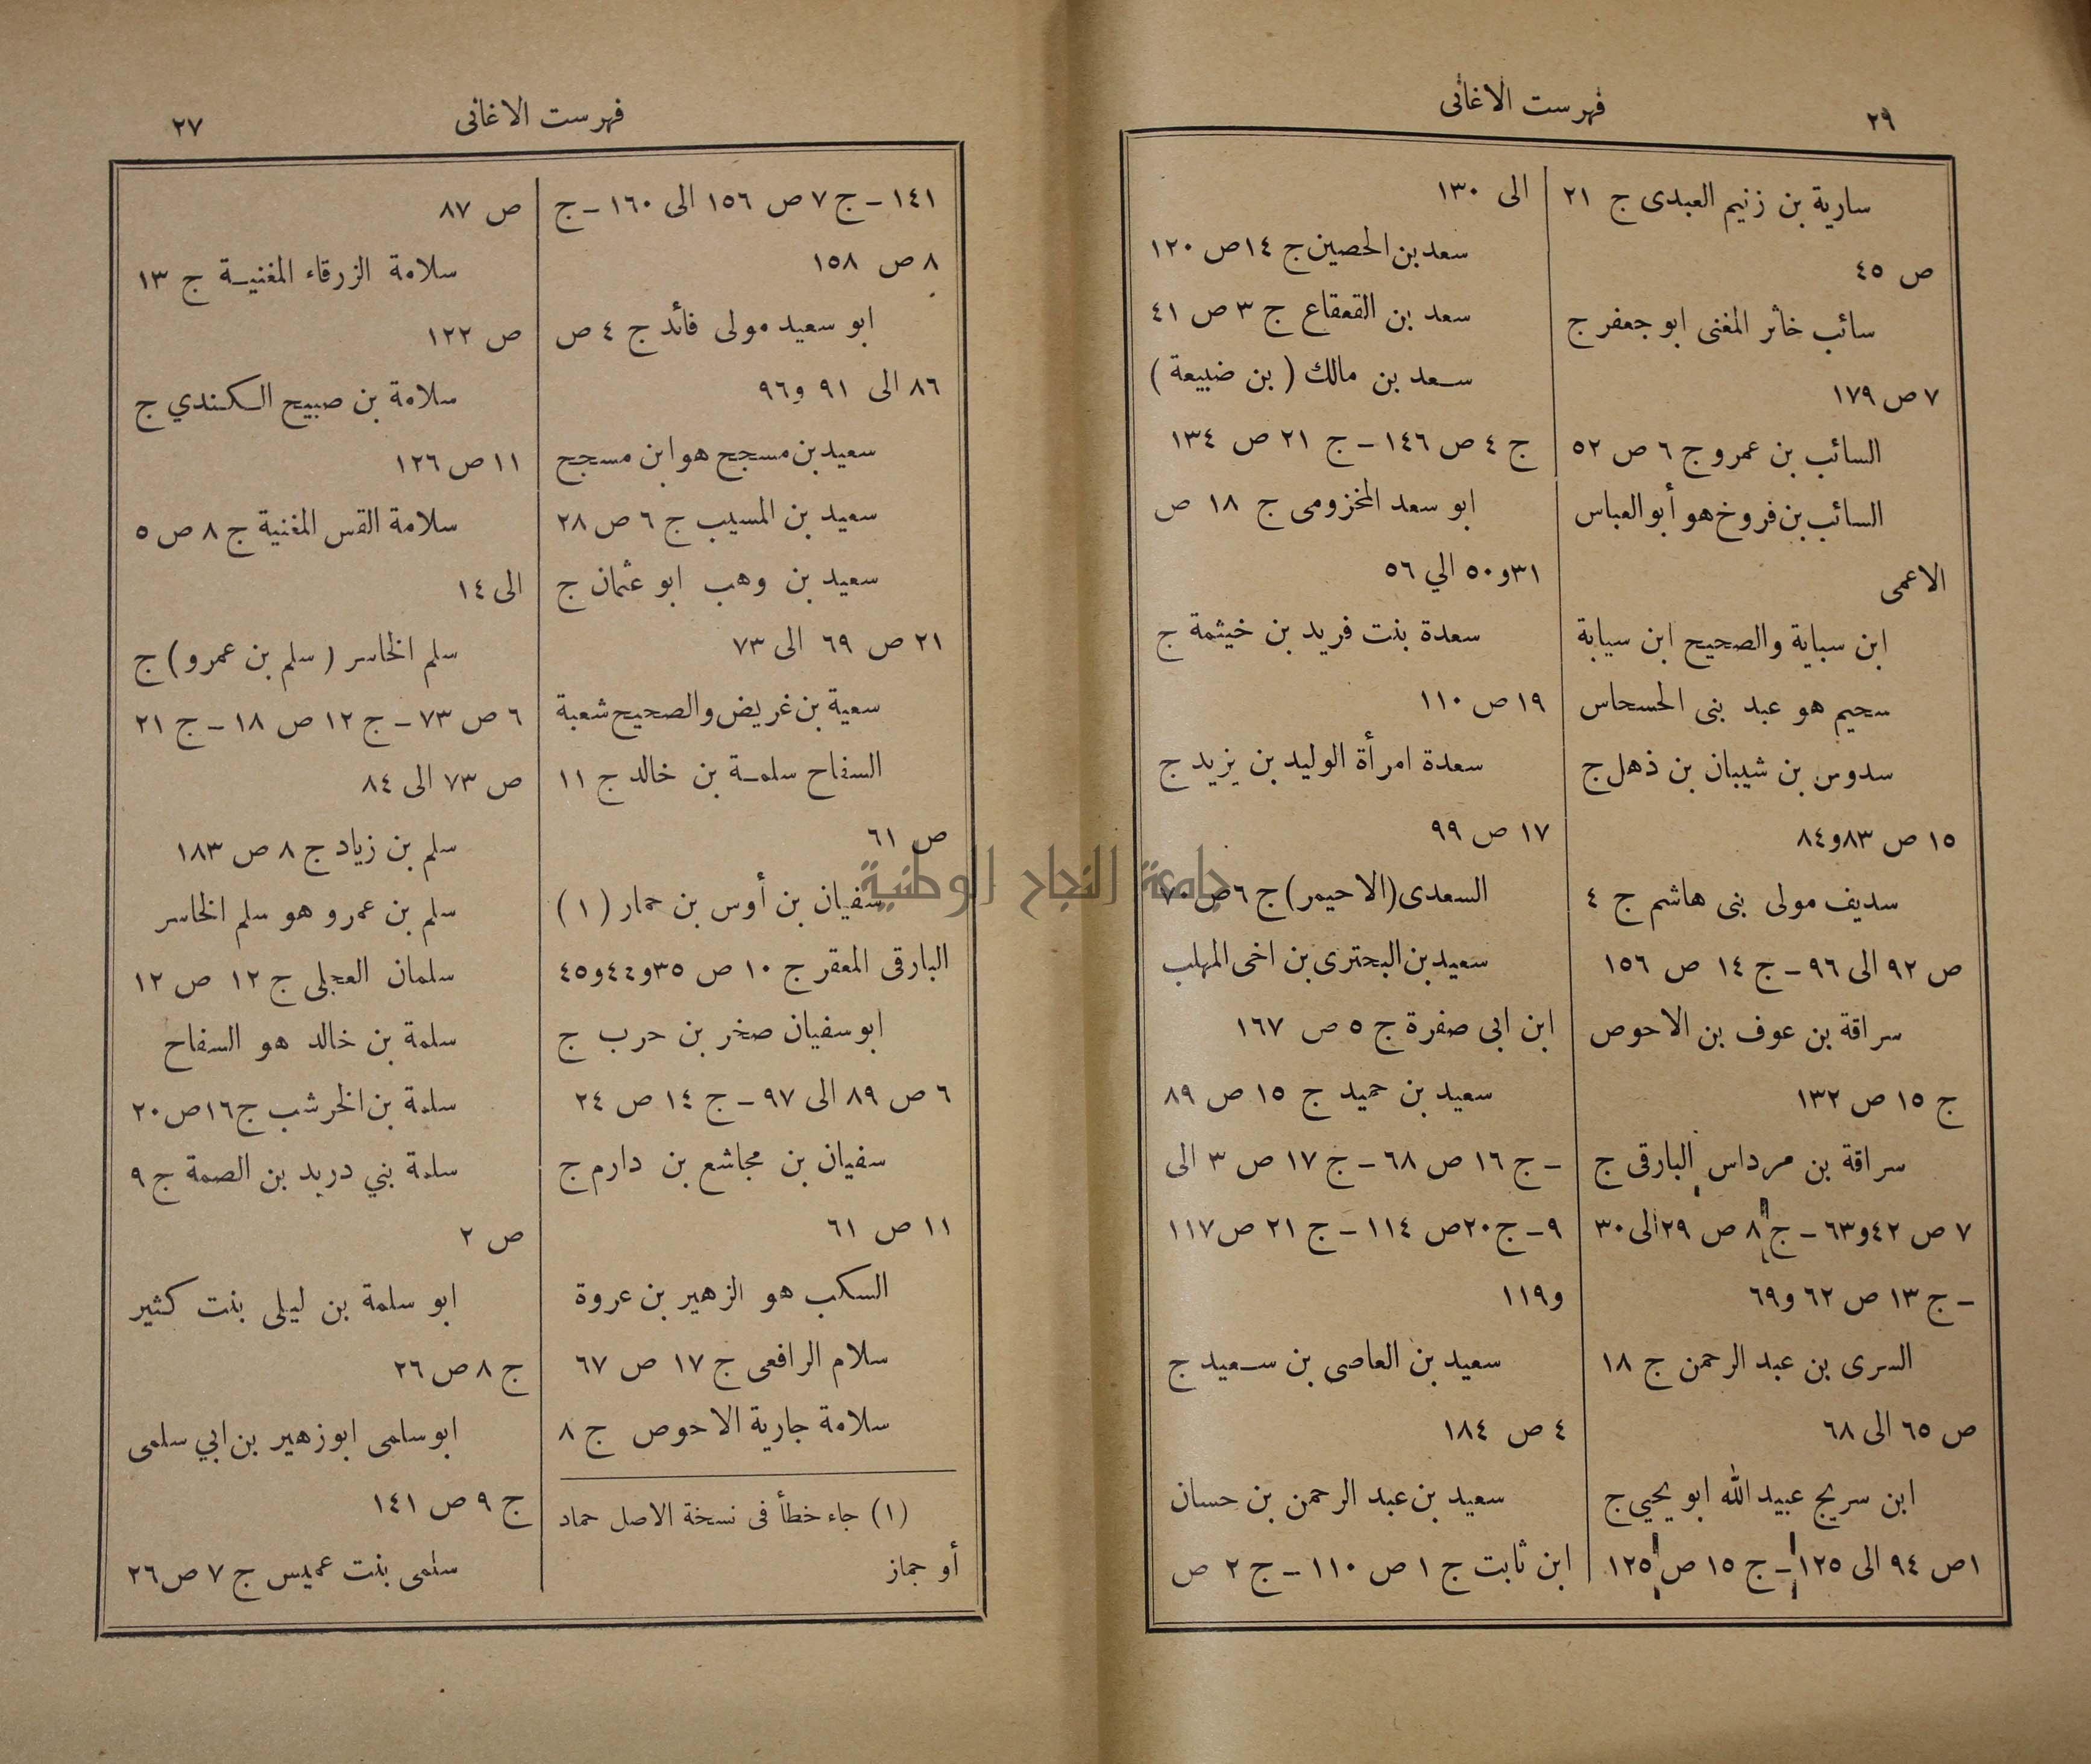 ٢٩
فهرست الاغانى
سارية بن زنيم العبدى ج ٢١
ص ٤٥
سائب خاثر المغنى ابو جعفر ج
٧ ص ١٧٩
السائب بن عمرو ج ٦ ص ٥٢
السائب بن فروخ هو أبو العباس
الاعمى
ابن سباية والصحيح ابن سيابة
سحيم هو عبد بنى الحسحاس
سدوس بن شيبان بن ذهل ج
١٥ ص ٨٣ و٨٤
سديف مولى بنى هاشم ج ٤
ص ٩٢ الى ٩٦ ـ ج ١٤ ص ١٥٦
سراقة بن عوف بن الاحوص
ج ١٥ ص ١٣٢
سراقة بن مرداس البارقى ج
٧ ص ٤٢ و٦٣ ـ ج ٨ ص ٢٩ الى ٣٠
ـ ج ١٣ ص ٦٢ و٦٩
السرى بن عبد الرحمن ج ١٨
ص ٦٥ الى ٦٨
ابن سريج عبيد الله ابو يحيي ج
١ ص ٩٤ الى ١٢٥ ـ ج ١٥ ص ١٢٥
الى ١٣٠
سعد بن الحصين ج ١٤ ص ١٢٠
سعد بن القعقاع ج ٣ ص ٤١
سعد بن مالك ( بن ضبيعة )
ج ٤ ص ١٤٦ ـ ج ٢١ ص ١٣٤
ابو سعد المخزومى ج ١٨ ص
٣١ و٥٠ الي ٥٦
سعدة بنت فريد بن خيثمة ج
١٩ ص ١١٠
سعدة امرأة الوليد بن يزيد ج
١٧ ص ٩٩
السعدى (الاحيمر) ج ٦ ص ٧٠
سعيد بن البحترى بن اخى المهلب
ابن ابى صفرة ج ٥ ص ١٦٧
سعيد بن حميد ج ١٥ ص ٨٩
ـ ج ١٦ ص ٦٨ ـ ج ١٧ ص ٣ الى
٩ ـ ج ٢٠ ص ١١٤ ـ ج ٢١ ص ١١٧
و١١٩
سعيد بن العاصى بن سعيد ج
٤ ص ١٨٤
سعيد بن عبد الرحمن بن حسان
ابن ثابت ج ١ ص ١١٠ ـ ج ٢ ص
فهرست الاغانى
٢٧
١٤١ ـ ج ٧ ص ١٥٦ الى ١٦٠ ـ ج
٨ ص ١٥٨
ابو سعيد مولى فائد ج ٤ ص
٨٦ الى ٩١ و٩٦
سعيد بن مسجح هو ابن مسجح
سعيد بن المسيب ج ٦ ص ٢٨
سعيد بن وهب ابو عثمان ج
٢١ ص ٦٩ الى ٧٣
سعية بن غريض والصحيح شعبة
السفاح سلمة بن خالد ج ١١
ص ٦١
سفيان بن أوس بن حمار ( ١ )
البارقى المعقر ج ١٠ ص ٣٥ و٤٤ و٤٥
ابو سفيان صخر بن حرب ج
٦ ص ٨٩ الى ٩٧ ـ ج ١٤ ص ٢٤
سفيان بن مجاشع بن دارم ج
١١ ص ٦١
السكب هو الزهير بن عروة
سلام الرافعى ج ١٧ ص ٦٧
سلامة جارية الاحوص ج ٨
(١) جاء خطأ فى نسخة الاصل حماد
أو جماز
ص ٨٧
سلامة الزرقاء المغنية ج ١٣
ص ١٢٢
سلامة بن صبيح الكندي ج
١١ ص ١٢٦
سلامة القس المغنية ج ٨ ص ٥
الى ١٤
سلم الخاسر ( سلم بن عمرو ) ج
٦ ص ٧٣ ـ ج ١٢ ص ١٨ ـ ج ٢١
ص ٧٣ الى ٨٤
سلم بن زياد ج ٨ ص ١٨٣
سلم بن عمرو هو سلم الخاسر
سلمان العجلى ج ١٢ ص ١٢
سلمة بن خالد هو السفاح
سلمة بن الخرشب ج ١٦ ص ٢٠
سلمة بني دريد بن الصمة ج ٩
ص ٢
ابو سلمة بن ليلى بنت كثير
ج ٨ ص ٢٦
ابو سلمى ابو زهير بن ابي سلمى
ج ٩ ص ١٤١
سلمى بنت عميس ج ٧ ص ٢٦
جامعة النجاح الوطنية